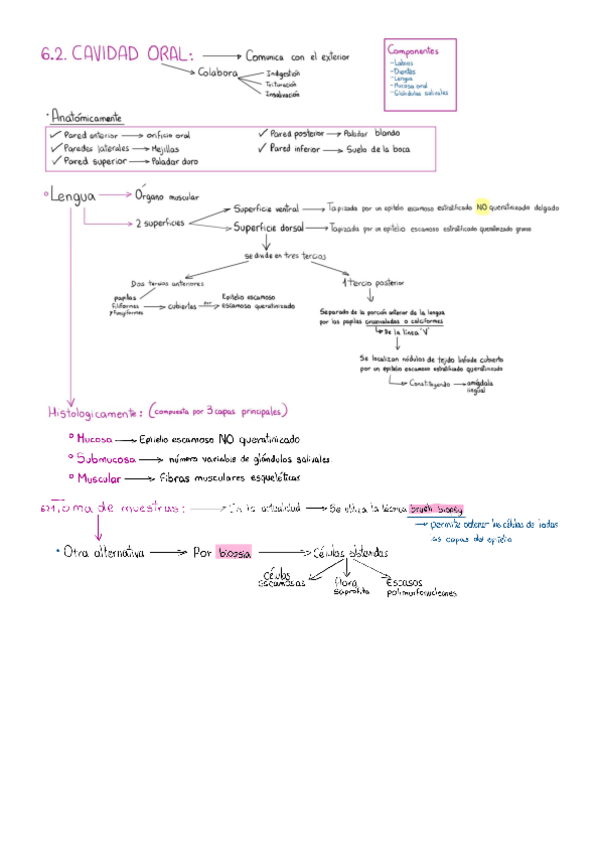 6.2. CAVIDAD ORAL: → Comunica con el exterior
Colabora
Indigestión
Trituración
Insalivación
Componentes
-Labios
-Dientes
-Lengua
-Mucosa oral
-Glándulas salivales
· Anatómicamente
✓ Pared anterior → orificio oral
✓ Paredes laterales → Mejillas
✓ Pared superior → Paladar duro
✓ Pared posterior → Paladar blando
✓ Pared inferior → Suelo de la boca
Lengua → Órgano muscular
2 superficies
Superficie ventral → Tapizada por un epitelio escamoso estratificado NO queratinizado delgado
Superficie dorsal → Tapizada por un epitelio escamoso estratificado queratinizado grueso
se divide en tres tercios
Dos tercios anteriores
papilas
filiformes
y fungiformes
cubiertas
por
Epitelio escamoso
escamoso queratinizado
1 tercio posterior
Separado de la porción anterior de la lengua
por las papilas circunvaladas o caliciformes
De la línea "V"
Se localizan nódulos de tejido linfoide cubierto
por un epitelio escamoso estratificado queratinizado
Constituyendo → amígdala
lingual
Histologicamente: (compuesta por 3 capas principales)
Mucosa → Epitelio escamoso NO queratinizado
Submucosa → número variable de glándulas salivales
Muscular → Fibras musculares esqueléticas
Toma de muestras: → En la actualidad → Se utiliza la técnica brush biopsy
→ permite obtener las células de todas
las capas del epitelio
· Otra alternativa → Por biopsia → Células obtenidas
Células
escamosas
Flora
saprofita
Escasos
polimorfonucleares